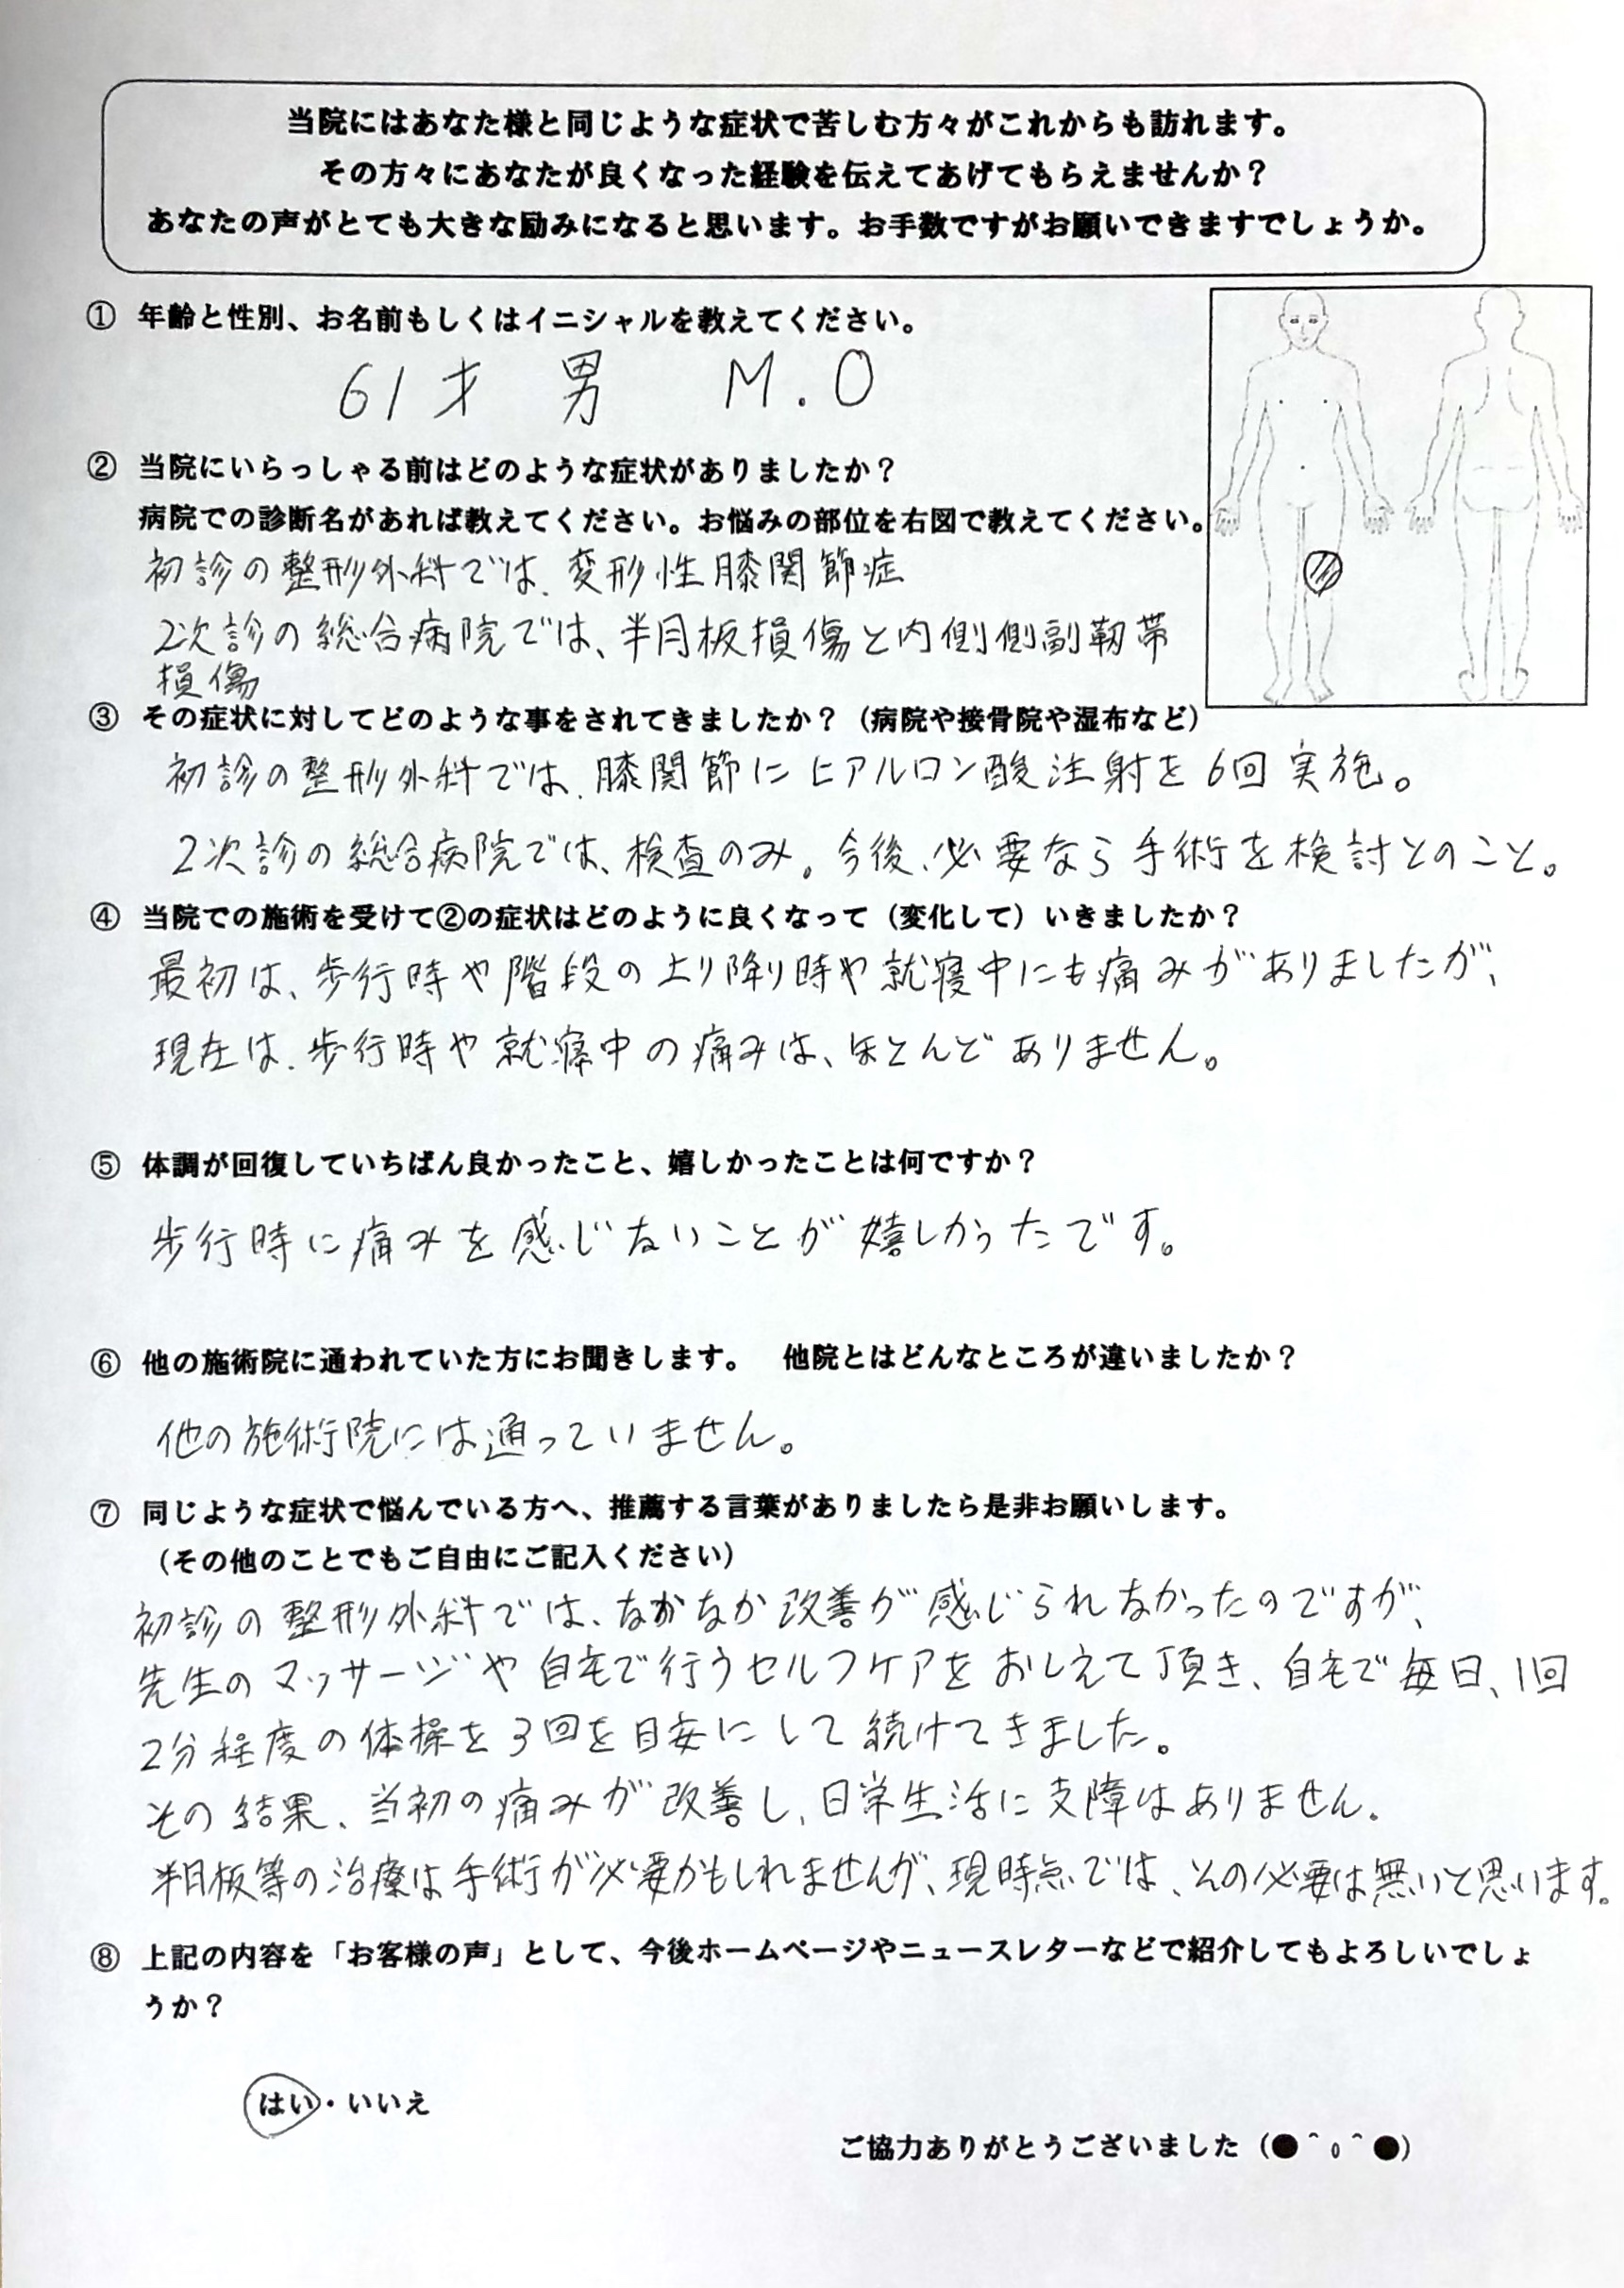 当院にはあなた様と同じような症状で苦しむ方々がこれからも訪れます。
その方々にあなたが良くなった経験を伝えてあげてもらえませんか？
あなたの声がとても大きな励みになると思います。お手数ですがお願いできますでしょうか。
① 年齢と性別、お名前もしくはイニシャルを教えてください。
61才 男 M.O
② 当院にいらっしゃる前はどのような症状がありましたか？
病院での診断名があれば教えてください。お悩みの部位を右図で教えてください。
初診の整形外科では、変形性膝関節症
2次診の総合病院では、半月板損傷と内側側副靭帯
損傷
③ その症状に対してどのような事をされてきましたか？（病院や接骨院や湿布など）
初診の整形外科では、膝関節にヒアルロン酸注射を6回実施。
2次診の総合病院では、検査のみ。今後、必要なら手術を検討とのこと。
④ 当院での施術を受けて②の症状はどのように良くなって（変化して）いきましたか？
最初は、歩行時や階段の上り降り時や就寝中にも痛みがありましたが、
現在は、歩行時や就寝中の痛みは、ほとんどありません。
⑤ 体調が回復していちばん良かったこと、嬉しかったことは何ですか？
歩行時に痛みを感じないことが嬉しかったです。
⑥ 他の施術院に通われていた方にお聞きします。 他院とはどんなところが違いましたか？
他の施術院には通っていません。
⑦ 同じような症状で悩んでいる方へ、推薦する言葉がありましたら是非お願いします。
（その他のことでもご自由にご記入ください）
初診の整形外科では、なかなか改善が感じられなかったのですが、
先生のマッサージや自宅で行うセルフケアをおしえて頂き、自宅で毎日、1回
2分程度の体操を3回を目安にして続けてきました。
その結果、当初の痛みが改善し、日常生活に支障はありません。
半月板等の治療は手術が必要かもしれませんが、現時点では、その必要は無いと思います。
⑧ 上記の内容を「お客様の声」として、今後ホームページやニュースレターなどで紹介してもよろしいでしょ
うか？
はい・いいえ
ご協力ありがとうございました（●＾o＾●）